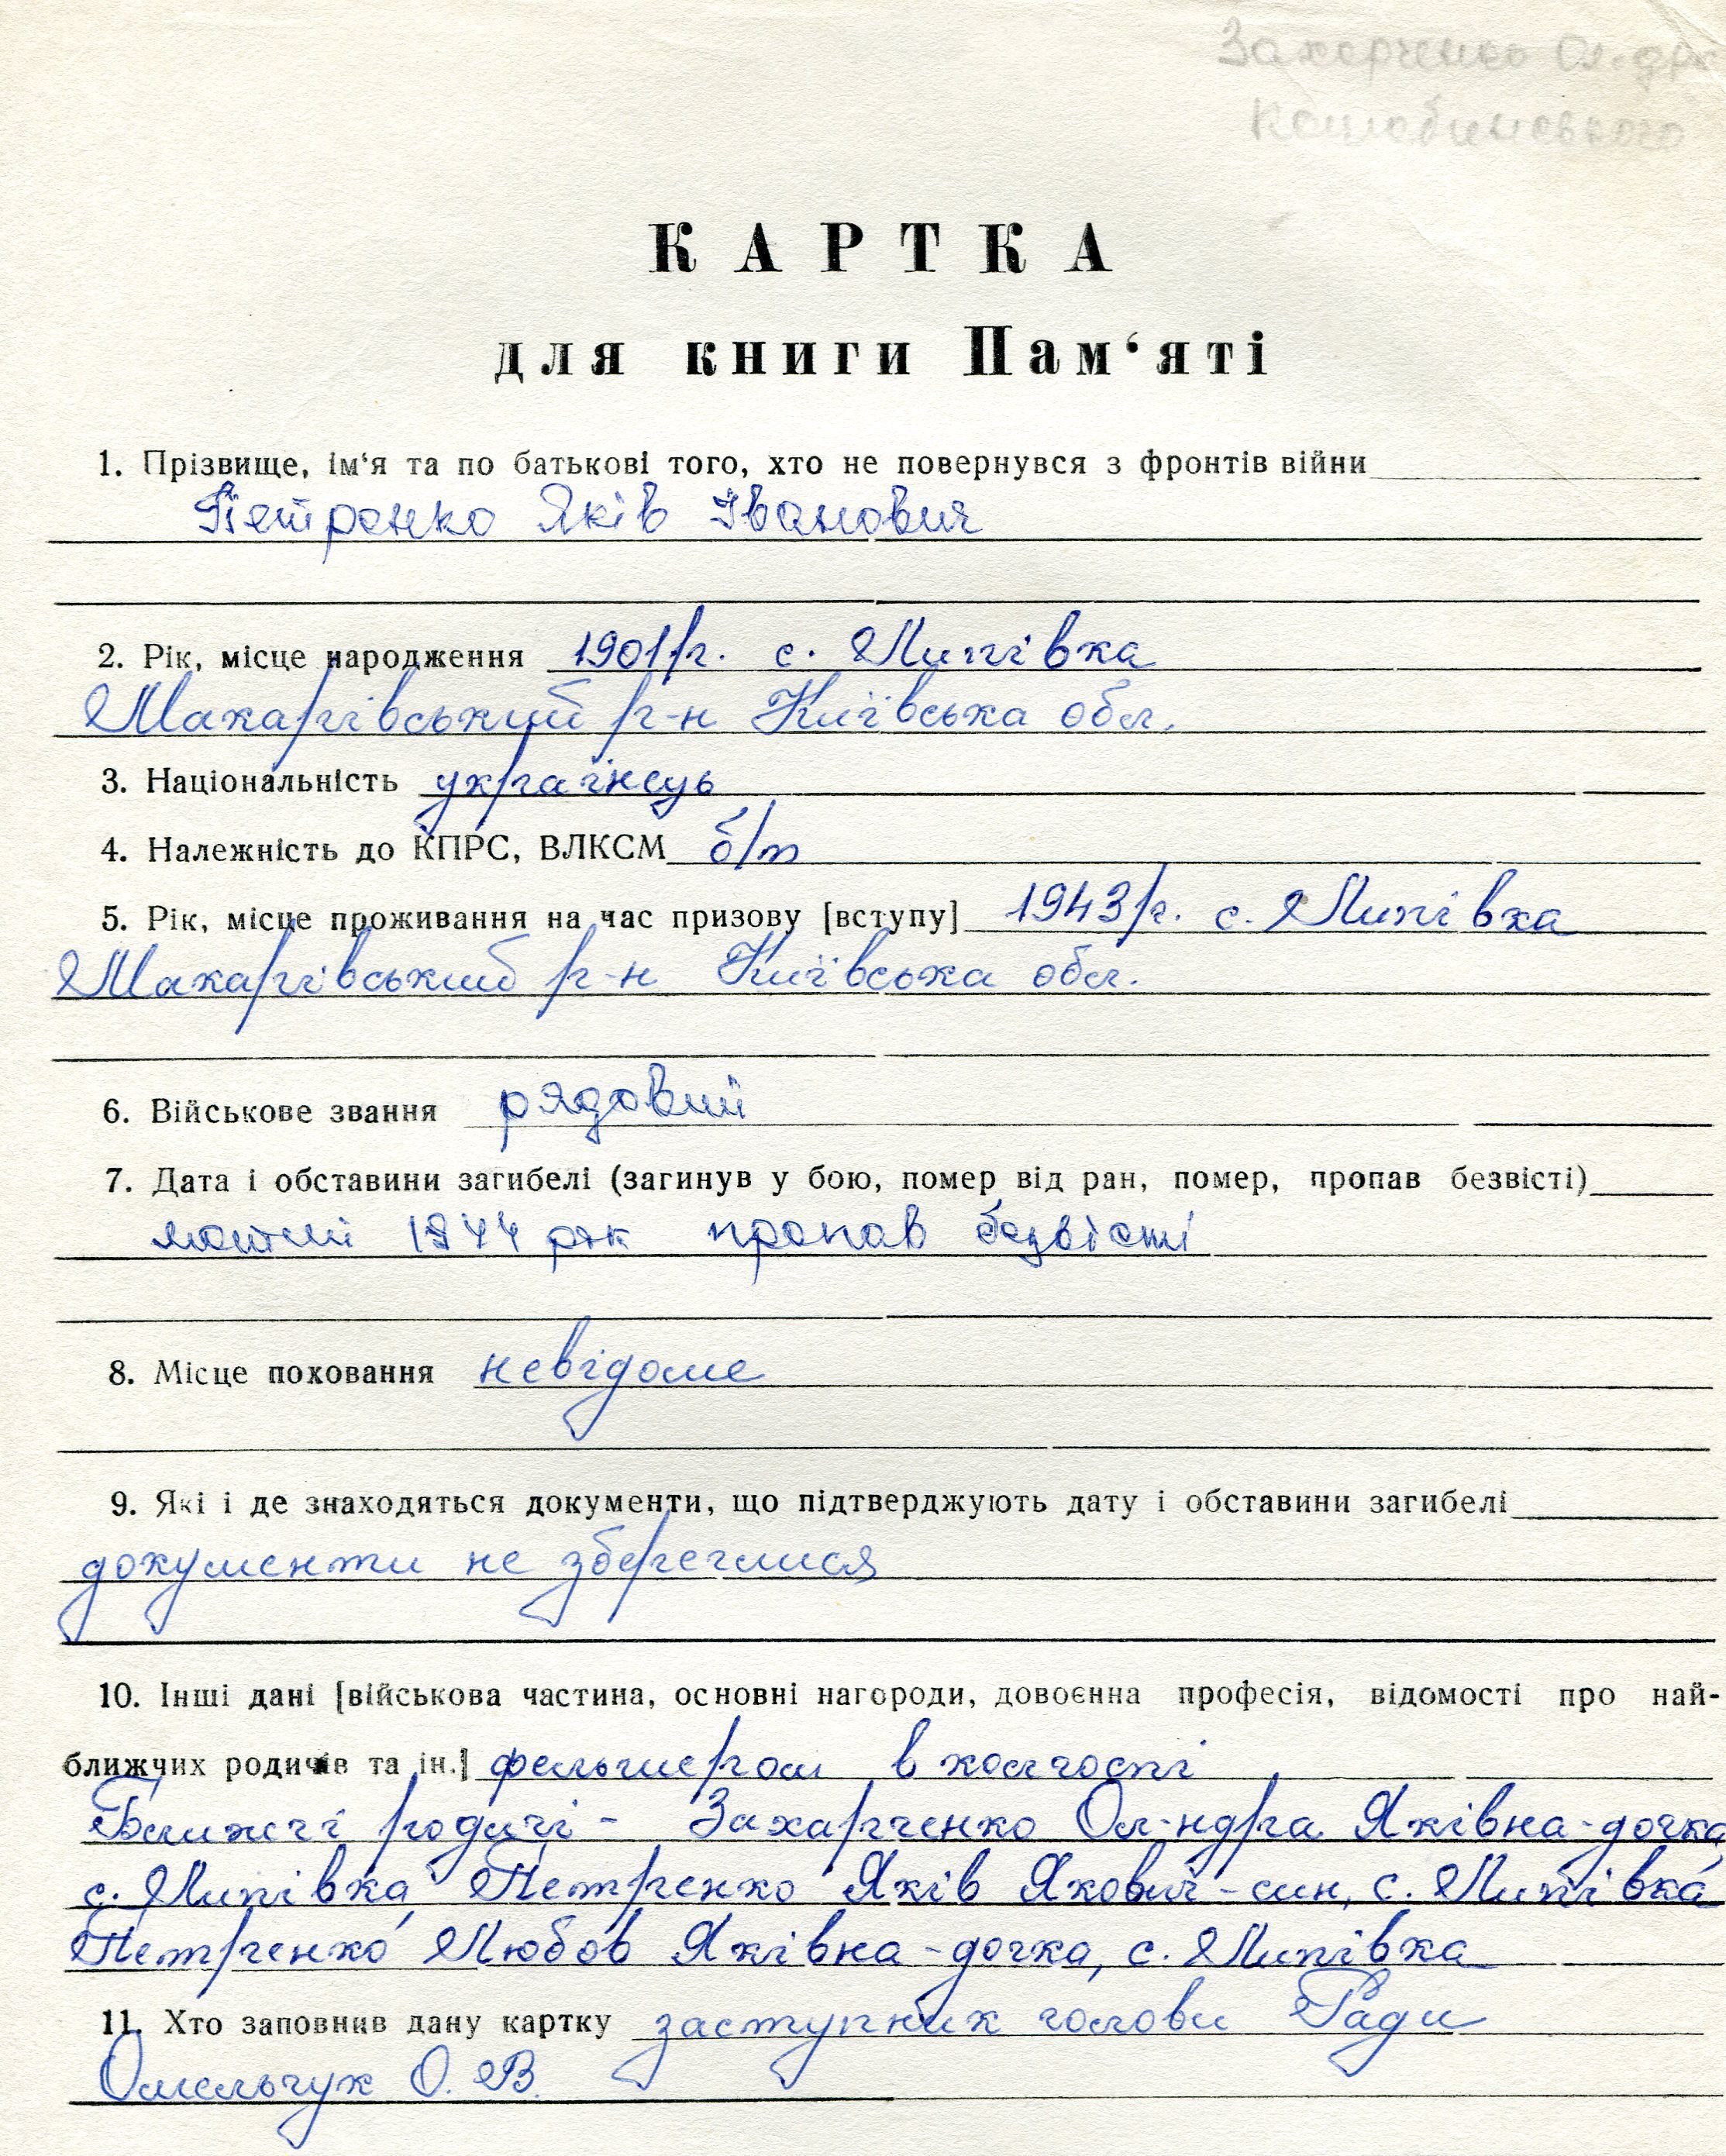 Захарченко Ол-дра
Коцюбинського
КАРТКА
для книги Пам‘яті
1. Прізвище, ім‘я та по батькові того, хто не повернувся з фронтів війни
Петренко Яків Іванович
2. Рік, місце народження 1901 р. с. Липівка
Макарівський р-н Київська обл.
3. Національність українець
4. Належність до КПРС, ВЛКСМ б/п
5. Рік, місце проживання на час призову [вступу] 1943 р. с. Липівка
Макарівський р-н Київська обл.
6. Військове звання рядовий
7. Дата і обставини загибелі (загинув у бою, помер від ран, помер, пропав безвісті)
лютий 1944 рік пропав безвісті
8. Місце поховання невідоме
9. Які і де знаходяться документи, що підтверджують дату і обставини загибелі
документи не збереглися
10. Інші дані [військова частина, основні нагороди, довоєнна професія, відомості про най-
ближчих родичів та ін.] фельдшером в колгоспі
Ближчі родичі - Захарченко Ол-ндра Яківна - дочка,
с. Липівка, Петренко Яків Якович - син, с. Липівка
Петренко Любов Яківна - дочка, с. Липівка
11. Хто заповнив дану картку заступник голови Ради
Омельчук О. В.